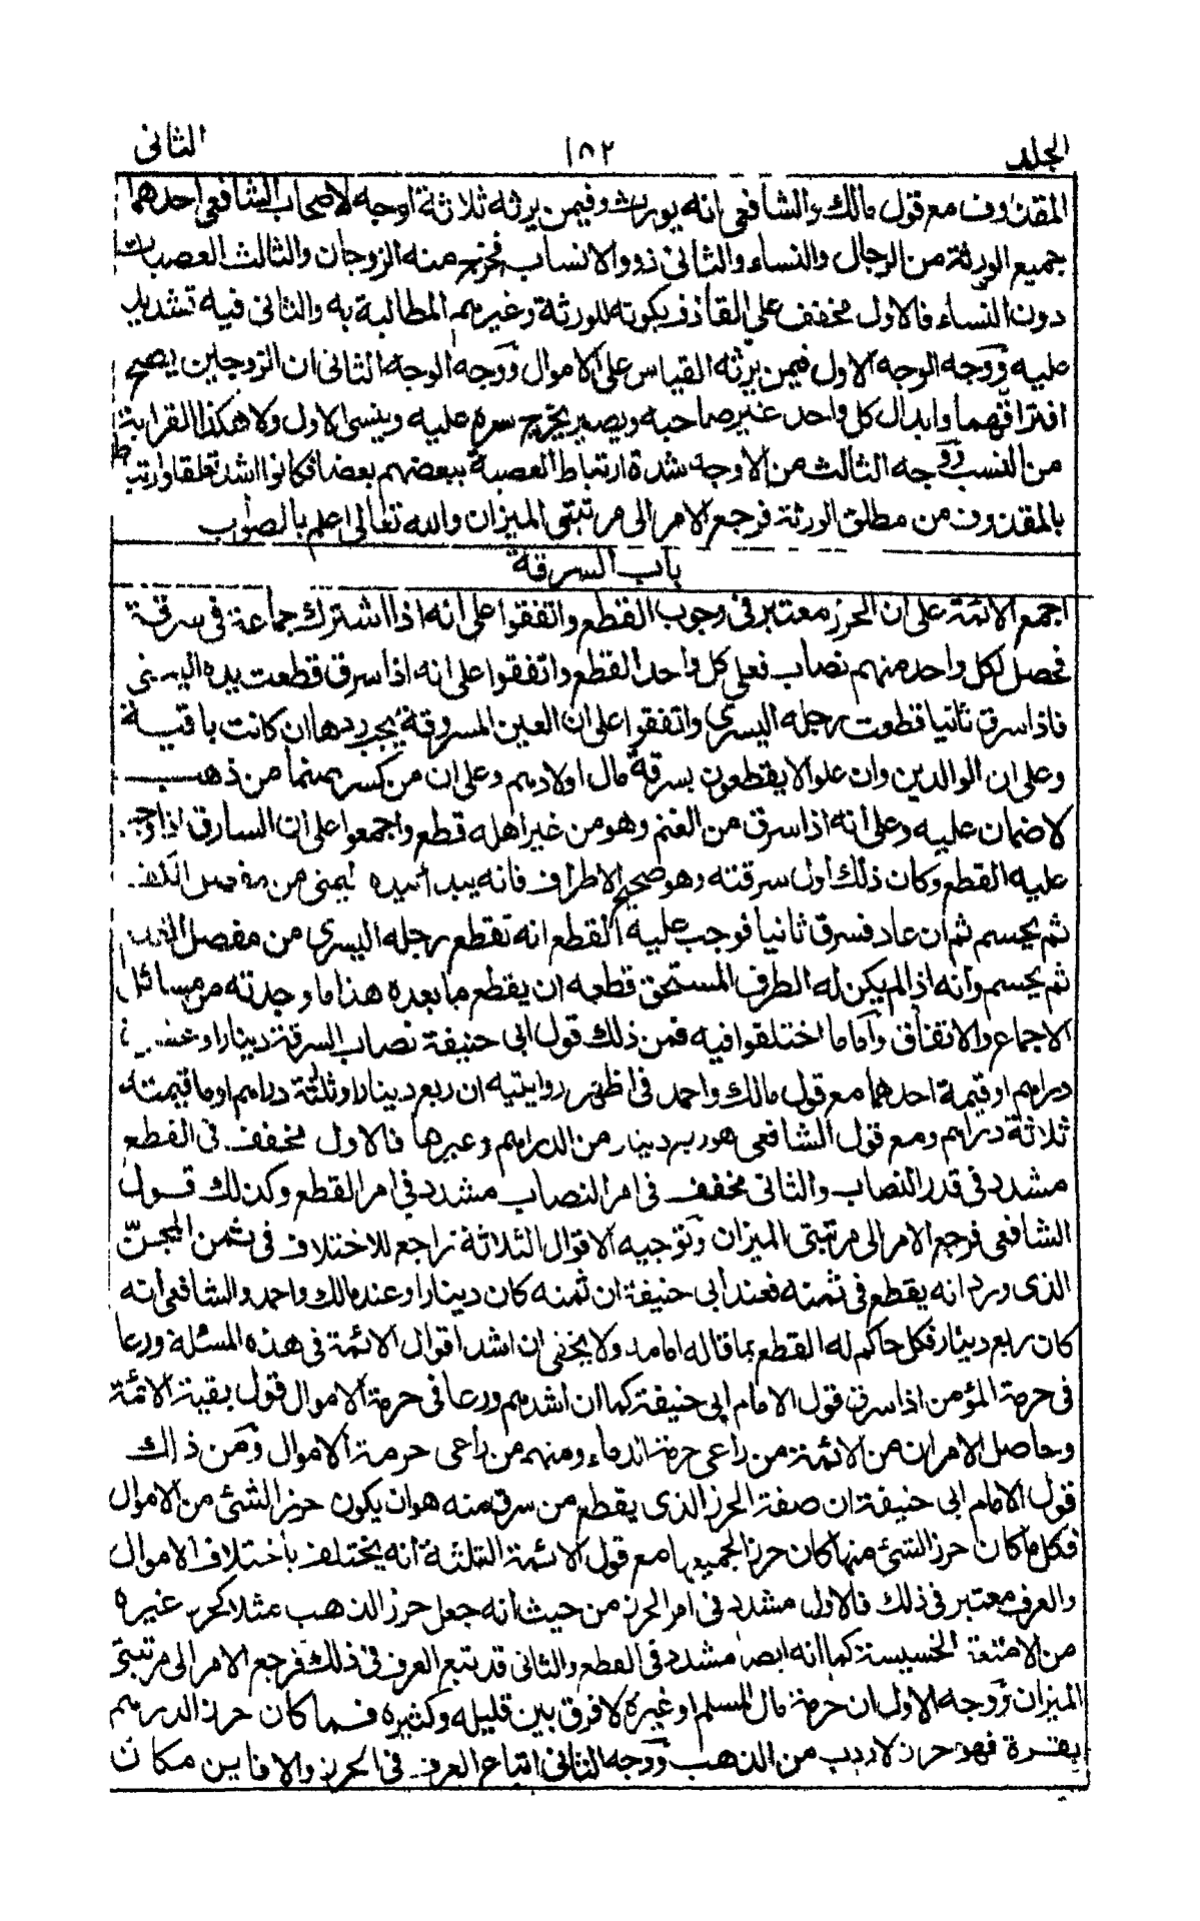 الجلد ١٥٢ الثانى
المقذوف مع قول مالك والشافعى انه يورث وفيمن يرثه ثلاثة اوجه لاصحاب الشافعى احدهما
جميع الورثة من الرجال والنساء والثانى ذوو الانساب فخرج منه الزوجان والثالث العصبات
دون النساء فالاول مخفف على القاذف بكونه للورثة وغيرهم المطالبة به والثانى فيه تشديد
عليه ووجه الوجه الاول فيمن يرثه القياس على الاموال ووجه الوجه الثانى ان الزوجين يصح
افتراقهما وابدال كل واحد غير صاحبه ويصير يخرج سره عليه وينسى الاول ولا هكذا القرابة
من النسب ووجه الثالث من الاوجه شدة ارتباط العصبة ببعضهم بعضا فكانوا اشد تعلقا وارتباط
بالمقذوف من مطلق الورثة فرجع الامر الى مرتبتى الميزان والله تعالى اعلم بالصواب
باب السرقة
اجمع الائمة على ان الحرز معتبر فى وجوب القطع واتفقوا على انه اذا اشترك جماعة فى سرقة
فحصل لكل واحد منهم نصاب فعلى كل واحد القطع واتفقوا على انه اذا سرق قطعت يده اليمنى
فاذا سرق ثانيا قطعت رجله اليسرى واتفقوا على ان العين المسروقة يجب ردها ان كانت باقية
وعلى ان الوالدين وان علوا لا يقطعون بسرقة مال اولادهم وعلى ان من كسر صنما من ذهب
لاضمان عليه وعلى انه اذا سرق من الغنم وهو من غير اهله قطع واجمعوا على ان السارق اذا وجب
عليه القطع وكان ذلك اول سرقته وهو صحيح الاطراف فانه يبدأ بيده اليمنى من مفصل الكف
ثم يحسم ثم ان عاد فسرق ثانيا فوجب عليه القطع انه تقطع رجله اليسرى من مفصل القدم
ثم يحسم وانه اذا لم يكن له الطرف المستحق قطعه ان يقطع ما بعده هذا ما وجدته من مسائل
الاجماع والاتفاق وأما ما اختلفوا فيه فمن ذلك قول ابى حنيفة نصاب السرقة دينار او عشرة
دراهم او قيمة احدهما مع قول مالك واحمد فى اظهر روايتيه ان ربع دينار او ثلثة دراهم او ما قيمته
ثلاثة دراهم ومع قول الشافعى هو ربع دينار من الدراهم وغيرها فالاول مخفف فى القطع
مشدد فى قدر النصاب والثانى مخفف فى امر النصاب مشدد فى امر القطع وكذلك قول
الشافعى فرجع الامر الى مرتبتى الميزان وتوجيه الاقوال الثلاثة راجع للاختلاف فى ثمن المجنّ
الذى ورد انه يقطع فى ثمنه فعند أبى حنيفة ان ثمنه كان دينارا وعند مالك واحمد والشافعى أنه
كان ربع دينار فكل حاكم له القطع بما قاله امامه ولا يخفى ان اشد اقوال الائمة فى هذه المسئلة ورعا
فى حرمة المؤمن اذا سرق قول الامام ابى حنيفة كما ان اشدهم ورعا فى حرمة الاموال قول بقية الائمة
وحاصل الامر ان من الائمة من راعى حرمة الدماء ومنهم من راعى حرمة الاموال ومن ذلك
قول الامام ابى حنيفة ان صفة الحرز الذى يقطع من سرق منه هو ان يكون حرز الشئ من الاموال
فكل ما كان حرز الشئ منها كان حرز الجميعها مع قول الائمة الثلثة أنه يختلف باختلاف الاموال
والعرف معتبر فى ذلك فالاول مشدد فى امر الحرز من حيث انه جعل حرز الذهب مثلا كحرز غيره
من الامتعة الخسيسة كما انه ايضا مشدد فى القطع والثانى قد يتبع العرف فى ذلك فرجع الامر الى مرتبتى
الميزان ووجه الاول ان حرمة مال المسلم او غيره لا فرق بين قليله وكثيره فما كان حرز الدرهم
بقرة فهو حرز لاردب من الذهب ووجه الثانى اتباع العرف فى الحرز والا فاين مكان